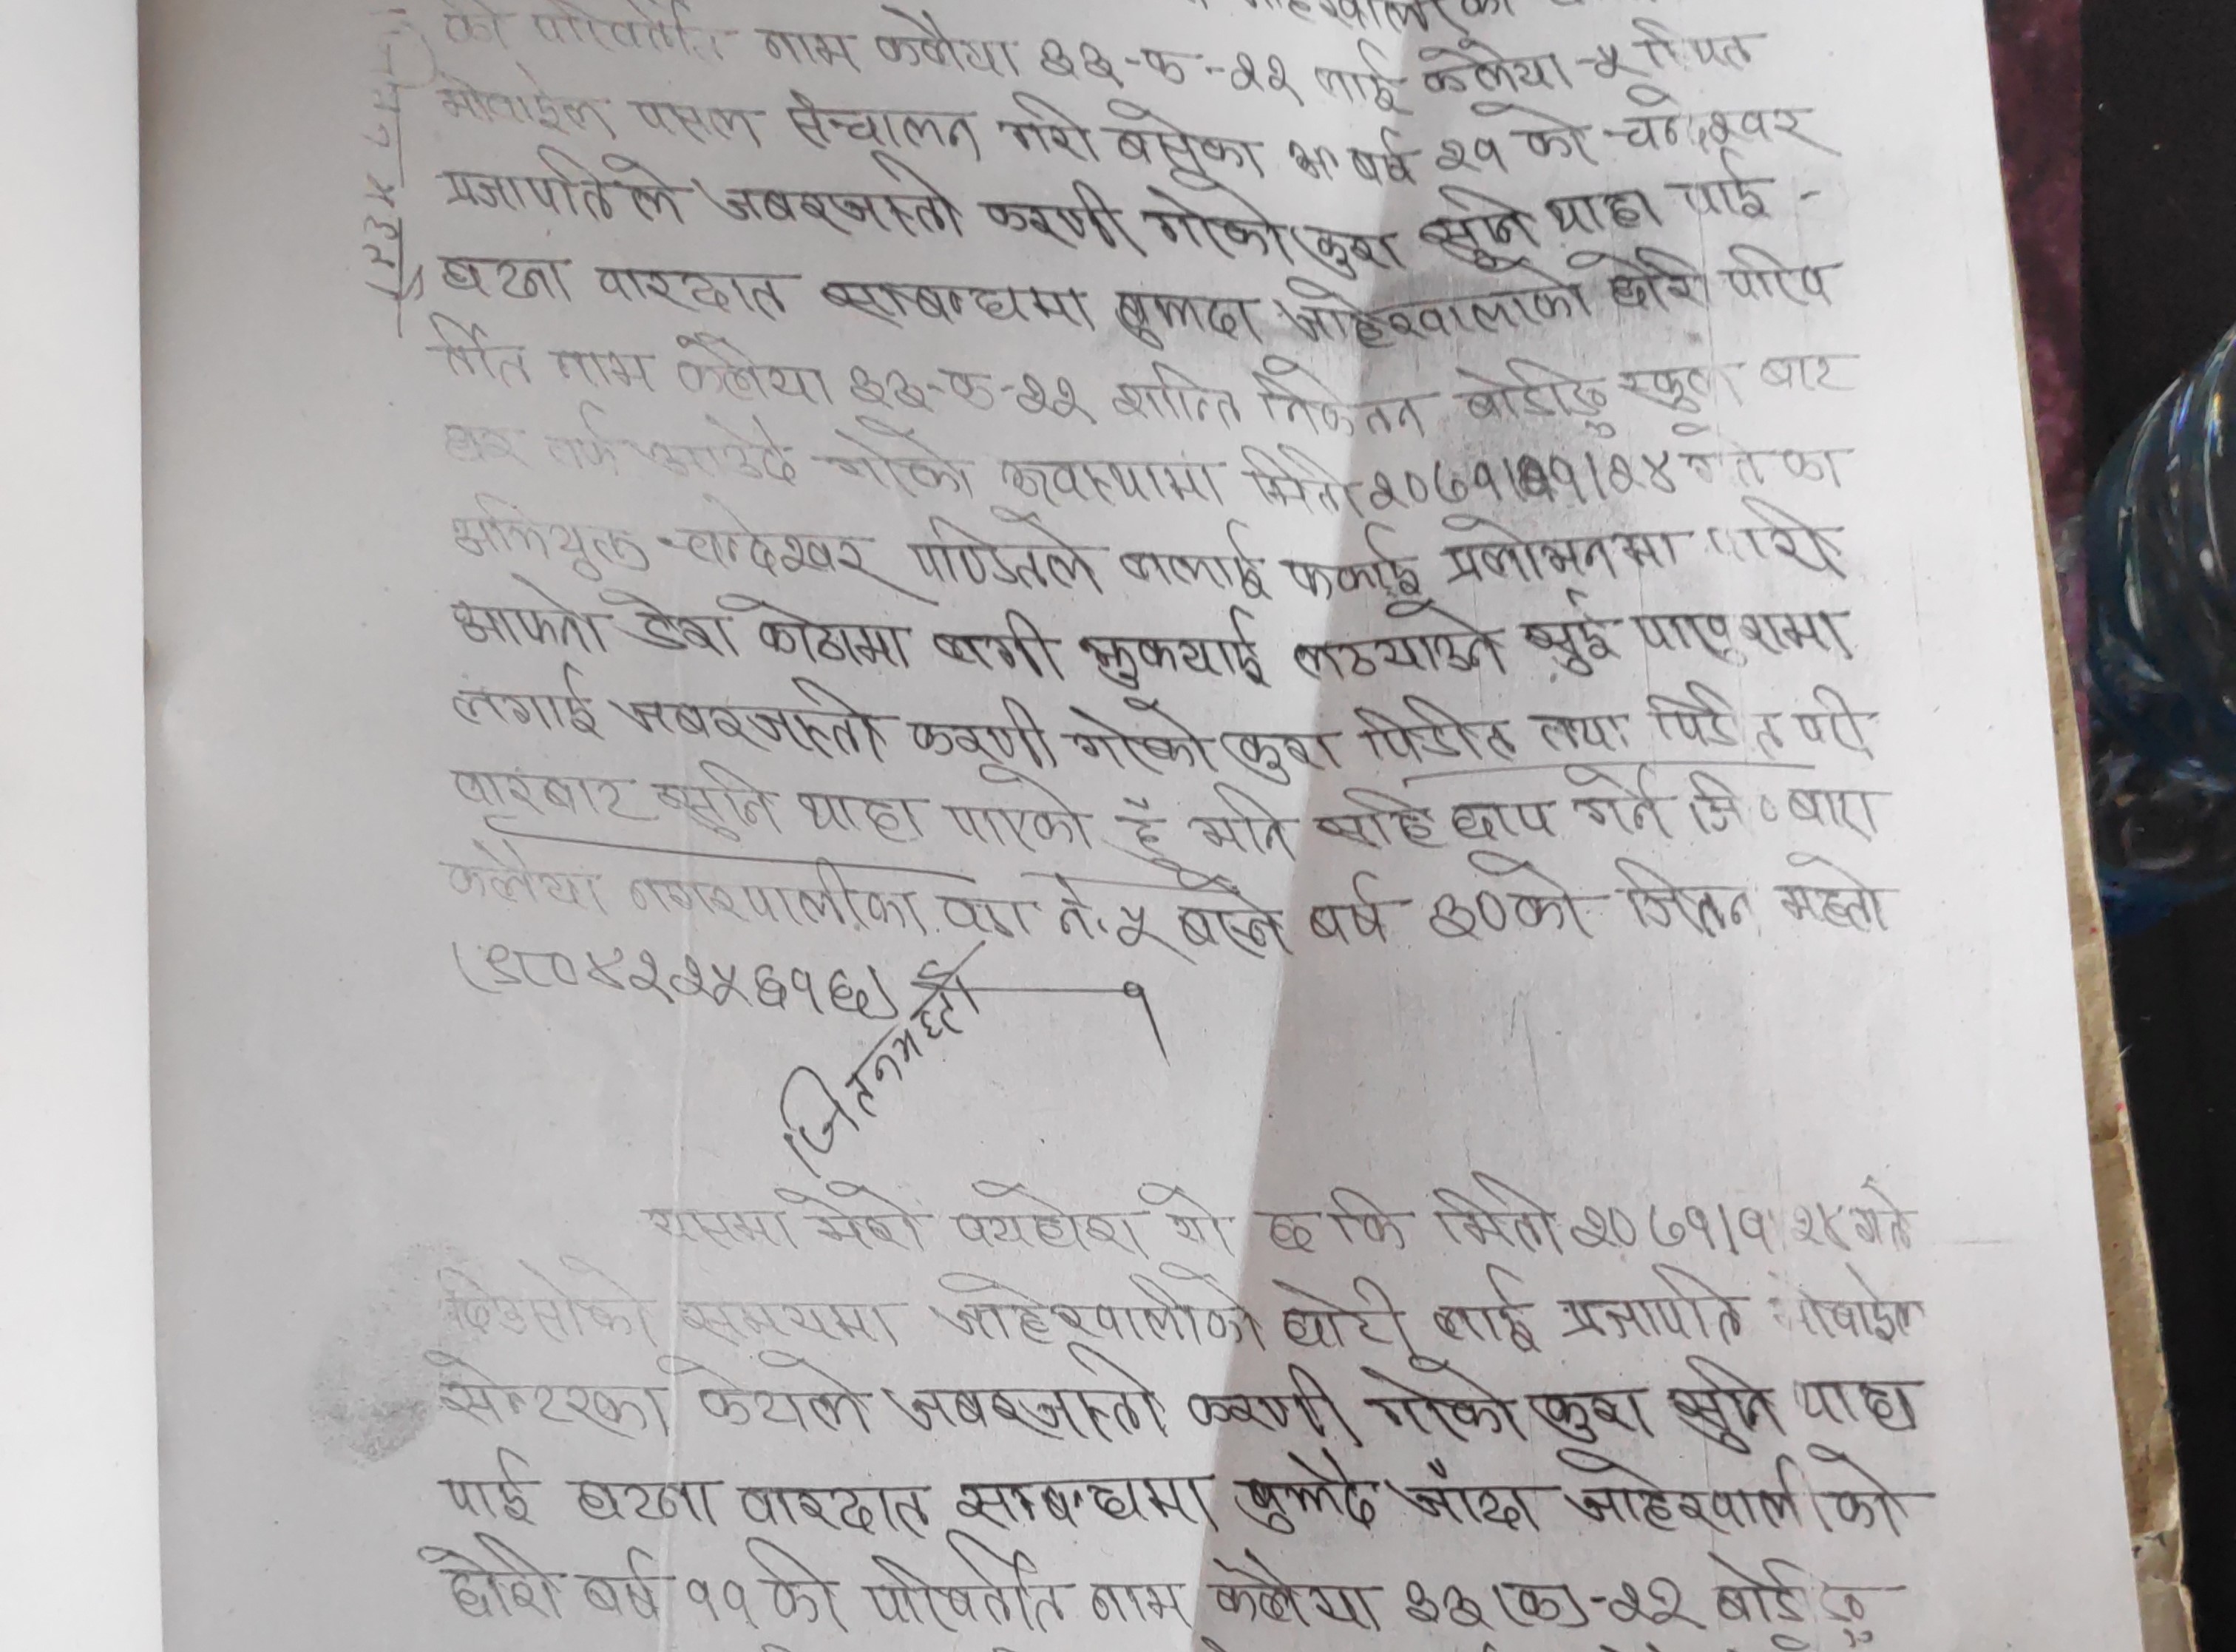 को परिवर्तित नाम कलैया ३३-क-२२ लाई कलैया-५ स्थित
मोवाईल पसल संन्चालन गरी बस्ने का अं बर्ष २१ को चन्देश्वर
प्रजापतिले जबरजस्ती करणी गरेको कुरा सुनी थाहा पाई -
घटना वारदात सम्बन्धमा बुझ्दा जाहेरवालाको छोरी परिव
र्तित नाम कलैया ३३-क-२२ शान्ति निकेतन बोर्डिङ्ग स्कुल बाट
घर तर्फ आउदै गरेको अवस्थामा मिति २०७१।१।२४ गतेका
अभियुक्त चन्देश्वर पण्डितले ललाई फकाई प्रलोभनमा पारी
आफ्नो डेरा कोठामा लगी झुक्याई लठ्याउने सुई पाखुरामा
लगाई जबरजस्ती करणी गरेको कुरा पिडीत तथा पिडीत परी
वारबाट सुनि थाहा पाएको हुँ भनि सहिछाप गर्ने जि० बारा
कलैया नगरपालीका वडा नं. ५ बस्ने बर्ष ३० को जितन महतो
(९८०४२२५६१६) १
जितन महतो
यसमा मेरो व्यहोरा यो छ कि मिति २०७१।१।२४ गते
दिउसोको समयमा जाहेरवालीको छोरी लाई प्रजापति मोवाईल
सेन्टरका केटाले जबरजस्ती करणी गरेको कुरा सुनि थाहा
पाई घटना वारदात सम्बन्धमा बुझ्दै जाँदा जाहेरवालीको
छोरी बर्ष ११ की परिवर्तित नाम कलैया ३३(क)-२२ बोर्डिङ्ग